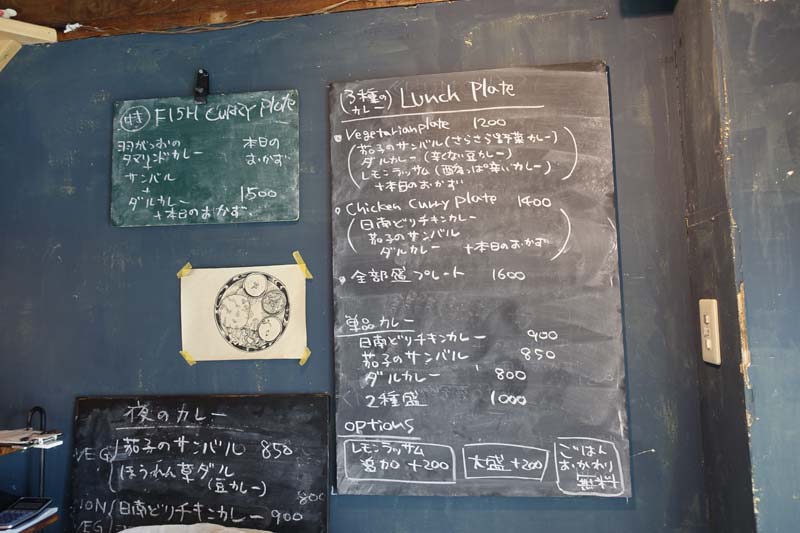 特 FISH Curry Plate
羽がつおの 本日の
タマリンドカレー おかず
サンバル
+
ダルカレー 1500
+本日のおかず
(3種のカレー) Lunch Plate
Vegetarian plate 1200
茄子のサンバル(さらさら野菜カレー)
ダルカレー(辛くない豆カレー)
レモンラッサム(酸っぱ辛いカレー)
+本日のおかず
Chicken Curry Plate 1400
日南どりチキンカレー
茄子のサンバル
ダルカレー +本日のおかず
全部盛プレート 1600
単品カレー
日南どりチキンカレー 900
茄子のサンバル 850
ダルカレー 800
2種盛 1000
options
レモンラッサム
追加 +200
大盛 +200
ごはん
おかわり
無料
夜のカレー
VEG 茄子のサンバル 850
ほうれん草ダル
(豆カレー) 800
NON 日南どりチキンカレー 900
VEG